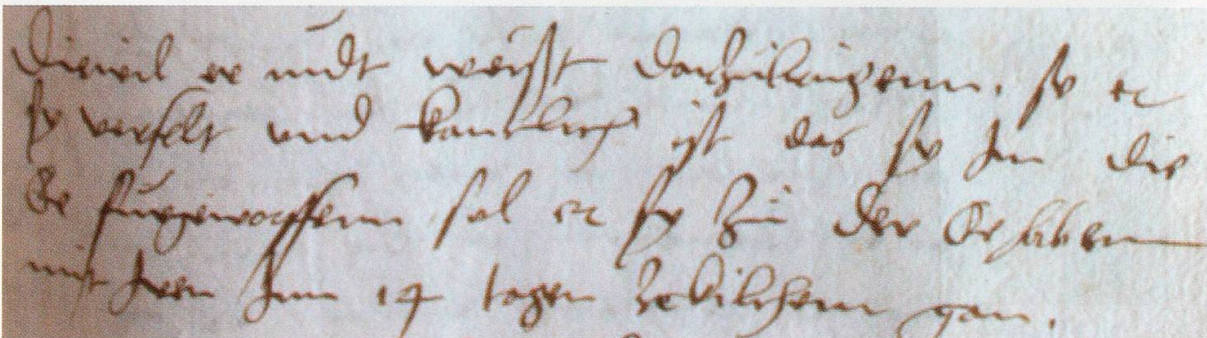 Diewil er nüdt weißt darzubringenn, so er
sy verfelt und kantlich ist das sy Im die
Ee fürgeworffenn sol er sy zu der Ee haben
mit Iren Inn 14 tagen zekilchenn gan.